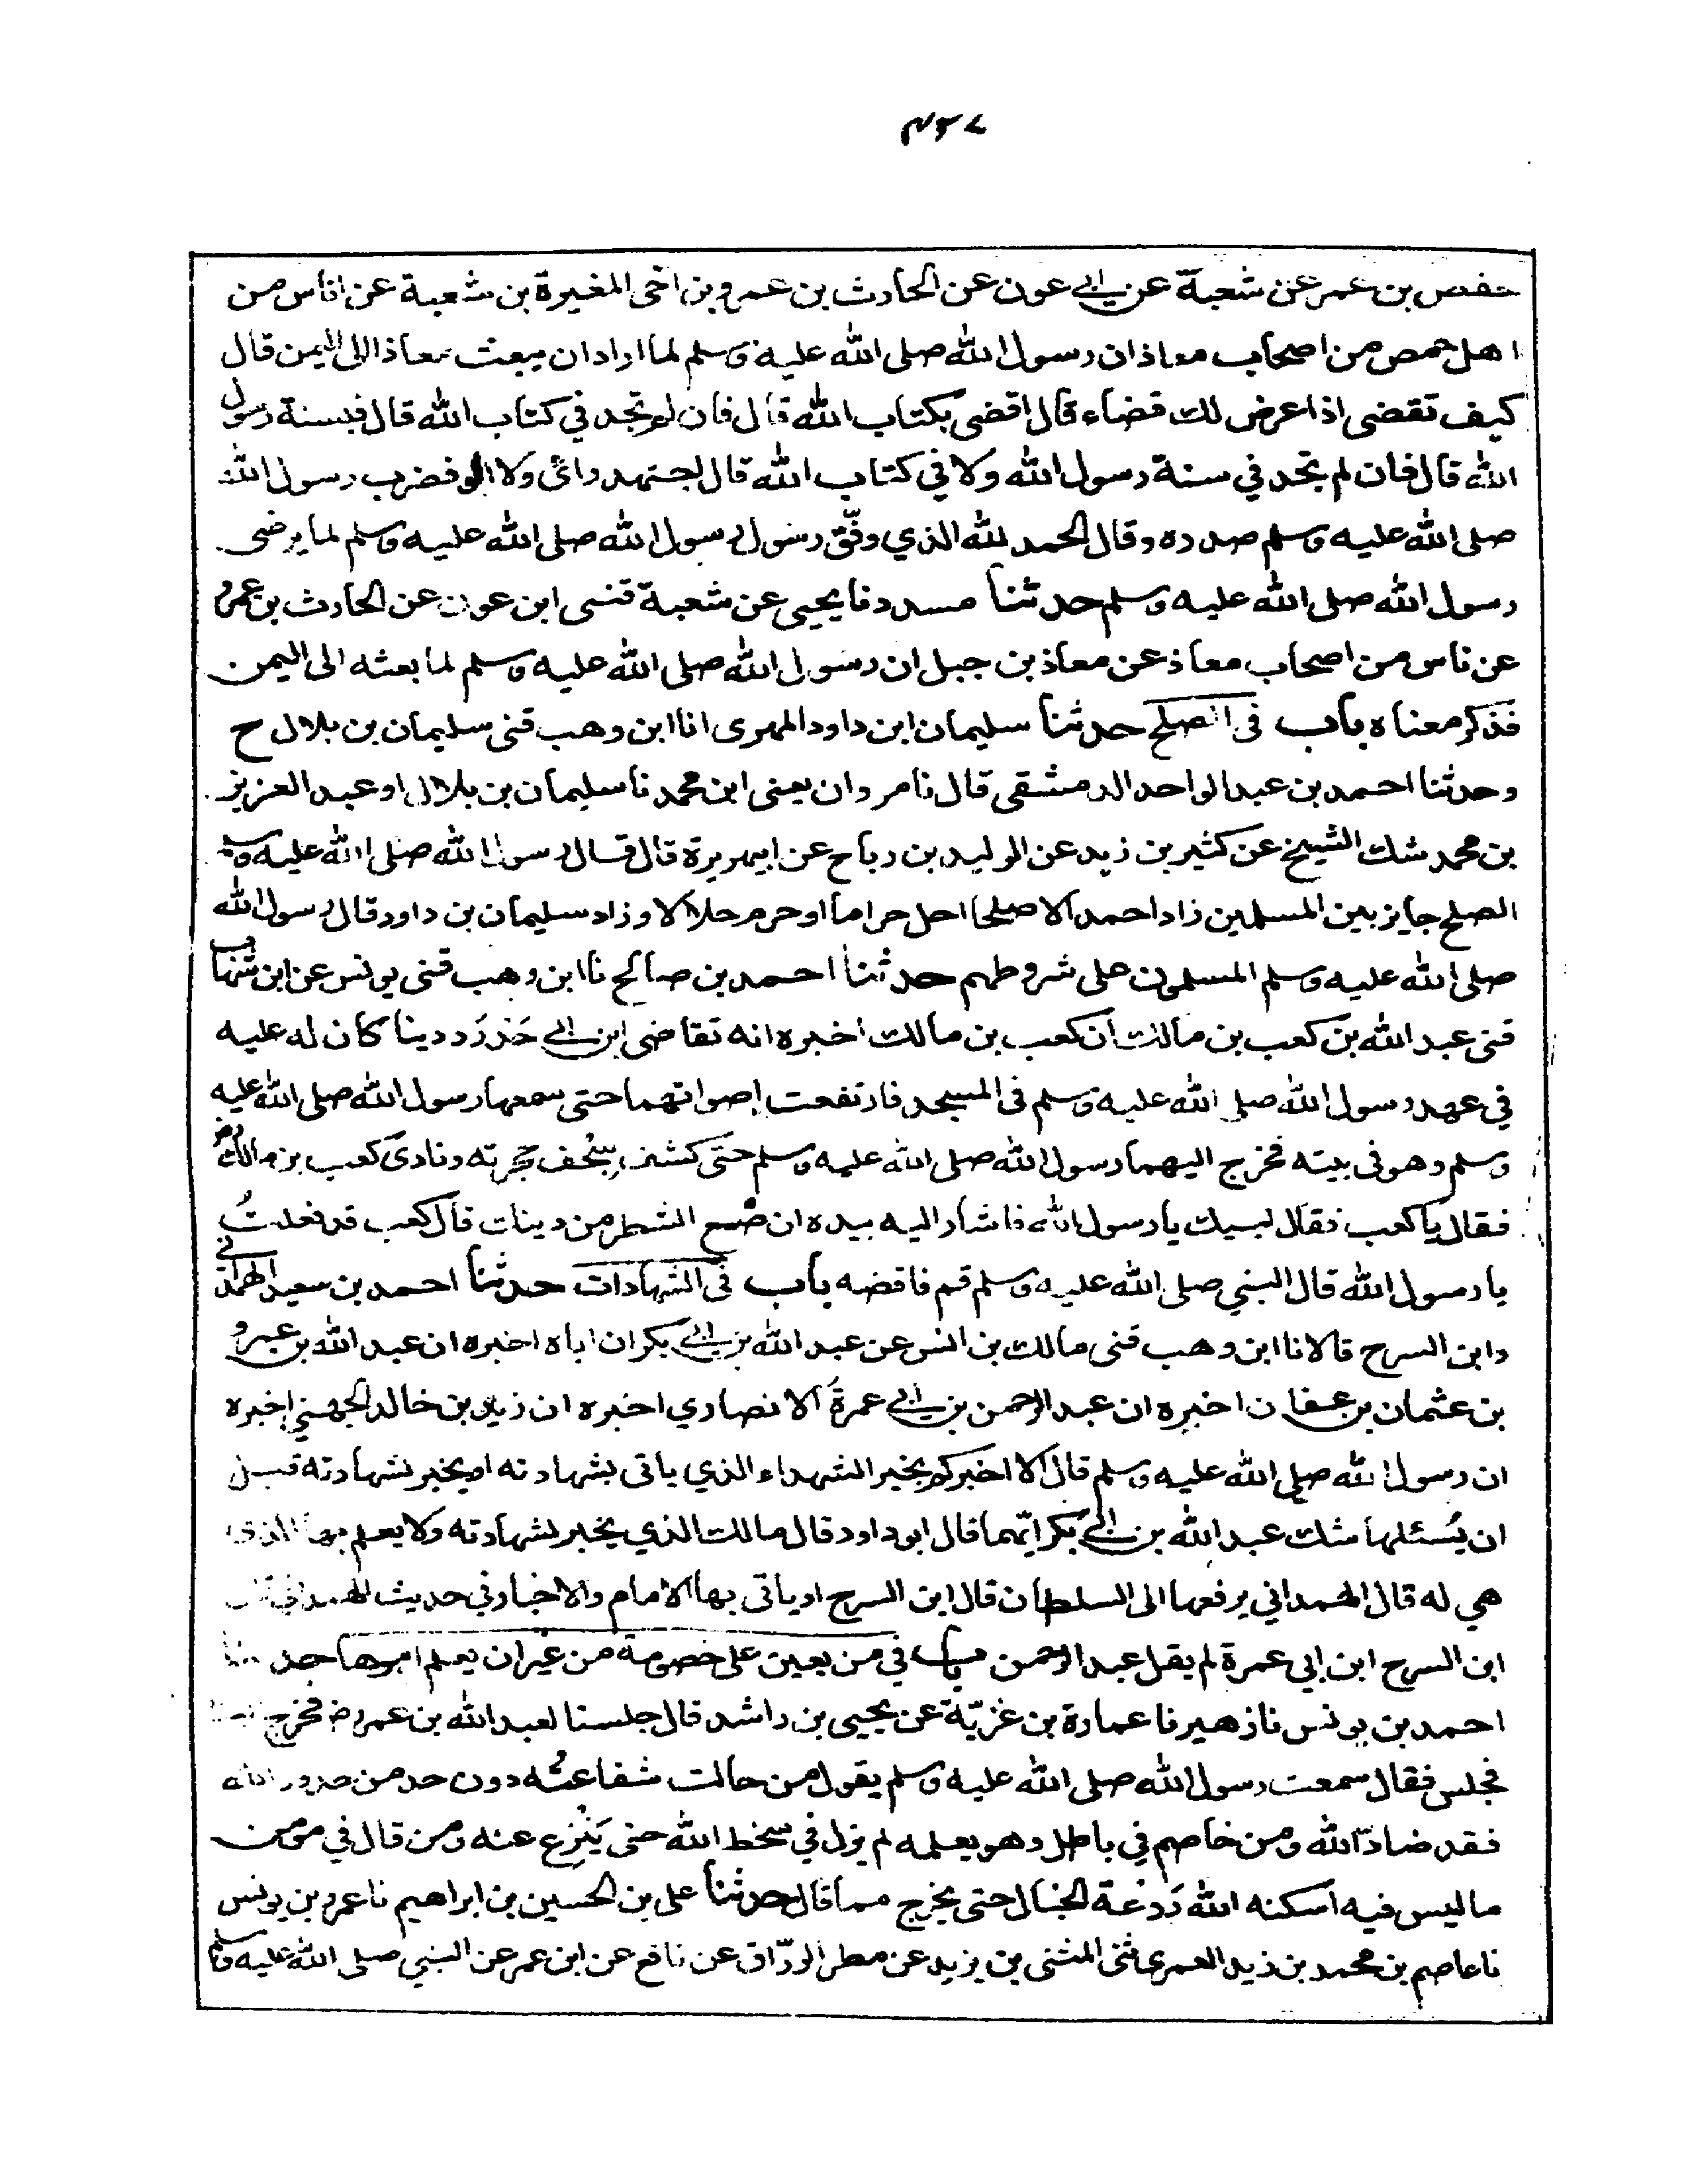 ۴۳۷
حفص بن عمر عن شعبة عن ابي عون عن الحارث بن عمرو بن اخى المغيرة بن شعبة عن اناس من
اهل حمص من اصحاب معاذ ان رسول الله صلى الله عليه وسلم لما اراد ان يبعث معاذا الى اليمن قال
كيف تقضى اذا عرض لك قضاء قال اقضى بكتاب الله قال فان لم تجد في كتاب الله قال فبسنة رسول
الله قال فان لم تجد في سنة رسول الله ولا في كتاب الله قال اجتهد رائى ولا الو فضرب رسول الله
صلى الله عليه وسلم صدره وقال الحمد لله الذي وفّق رسول رسول الله صلى الله عليه وسلم لما يرضى
رسول الله صلى الله عليه وسلم حدثنا مسدد نا يحيى عن شعبة قنى ابن عون عن الحارث بن عمرو
عن ناس من اصحاب معاذ عن معاذ بن جبل ان رسول الله صلى الله عليه وسلم لما بعثه الى اليمن
فذكر معناه باب فى الصلح حدثنا سليمان ابن داود المهرى انا ابن وهب قنى سليمان بن بلال ح
وحدثنا احمد بن عبد الواحد الدمشقى قال نا مروان يعنى ابن محمد نا سليمان بن بلال او عبد العزيز
بن محمد شك الشيخ عن كثير بن زيد عن الوليد بن رباح عن ابيهريرة قال قال رسول الله صلى الله عليه وسلم
الصلح جايز بين المسلمين زاد احمد الا صلحا احل حراما او حرم حلالا وزاد سليمان بن داود قال رسول الله
صلى الله عليه وسلم المسلمون على شروطهم حدثنا احمد بن صالح نا ابن وهب قنى يونس عن ابن شهاب
قنى عبد الله بن كعب بن مالك ان كعب بن مالك اخبره انه تقاضى ابن ابي حَدْرَد دينا كان له عليه
في عهد رسول الله صلى الله عليه وسلم فى المسجد فارتفعت اصواتهما حتى سمعها رسول الله صلى الله عليه
وسلم وهو فى بيته فخرج اليهما رسول الله صلى الله عليه وسلم حتى كشف سِجْف حجرته ونادى كعب بن مالك رض
فقال يا كعب فقال لبيك يا رسول الله فاشار اليه بيده ان ضع الشطر من دينك قال كعب قد فعلتُ
يا رسول الله قال النبي صلى الله عليه وسلم قم فاقضه باب فى الشهادات حدثنا احمد بن سعيد الهمدانى
وابن السرح قالا نا ابن وهب قنى مالك بن انس عن عبد الله بن ابي بكر ان اباه اخبره ان عبد الله بن عمرو
بن عثمان بن عفان اخبره ان عبد الرحمن بن ابي عمرةَ الانصاري اخبره ان زيد بن خالد الجهني اخبره
ان رسول الله صلى الله عليه وسلم قال الا اخبركم بخير الشهداء الذي ياتى بشهادته او يخبر بشهادته قبل
ان يُسئلها شك عبد الله بن ابي بكر ايّهما قال ابو داود قال مالك الذي يخبر بشهادته ولا يعلم بها الذي
هي له قال الهمداني يرفعها الى السلطان قال ابن السرح او ياتى بها الامام والاخبار في حديث الهمداني قال
ابن السرح ابن ابي عمرة لم يقل عبد الرحمن باب في من يعين على خصومة من غير ان يعلم امرها حدثنا
احمد بن يونس نا زهير نا عمارة بن غزيّة عن يحيى بن راشد قال جلسنا لعبد الله بن عمر رض فخرج الينا
فجلس فقال سمعت رسول الله صلى الله عليه وسلم يقول من حالت شفاعتُه دون حد من حدود الله
فقد ضادّ الله ومن خاصم في باطل وهو يعلمه لم يزل في سخط الله حتى يَنْزِع عنه ومن قال في مومن
ما ليس فيه اسكنه الله رَدْغة الخبال حتى يخرج مما قال حدثنا على بن الحسين بن ابراهيم نا عمر بن يونس
نا عاصم بن محمد بن زيد العمري ثنى المثنى بن يزيد عن مطر الورّاق عن نافع عن ابن عمر عن النبي صلى الله عليه وسلم